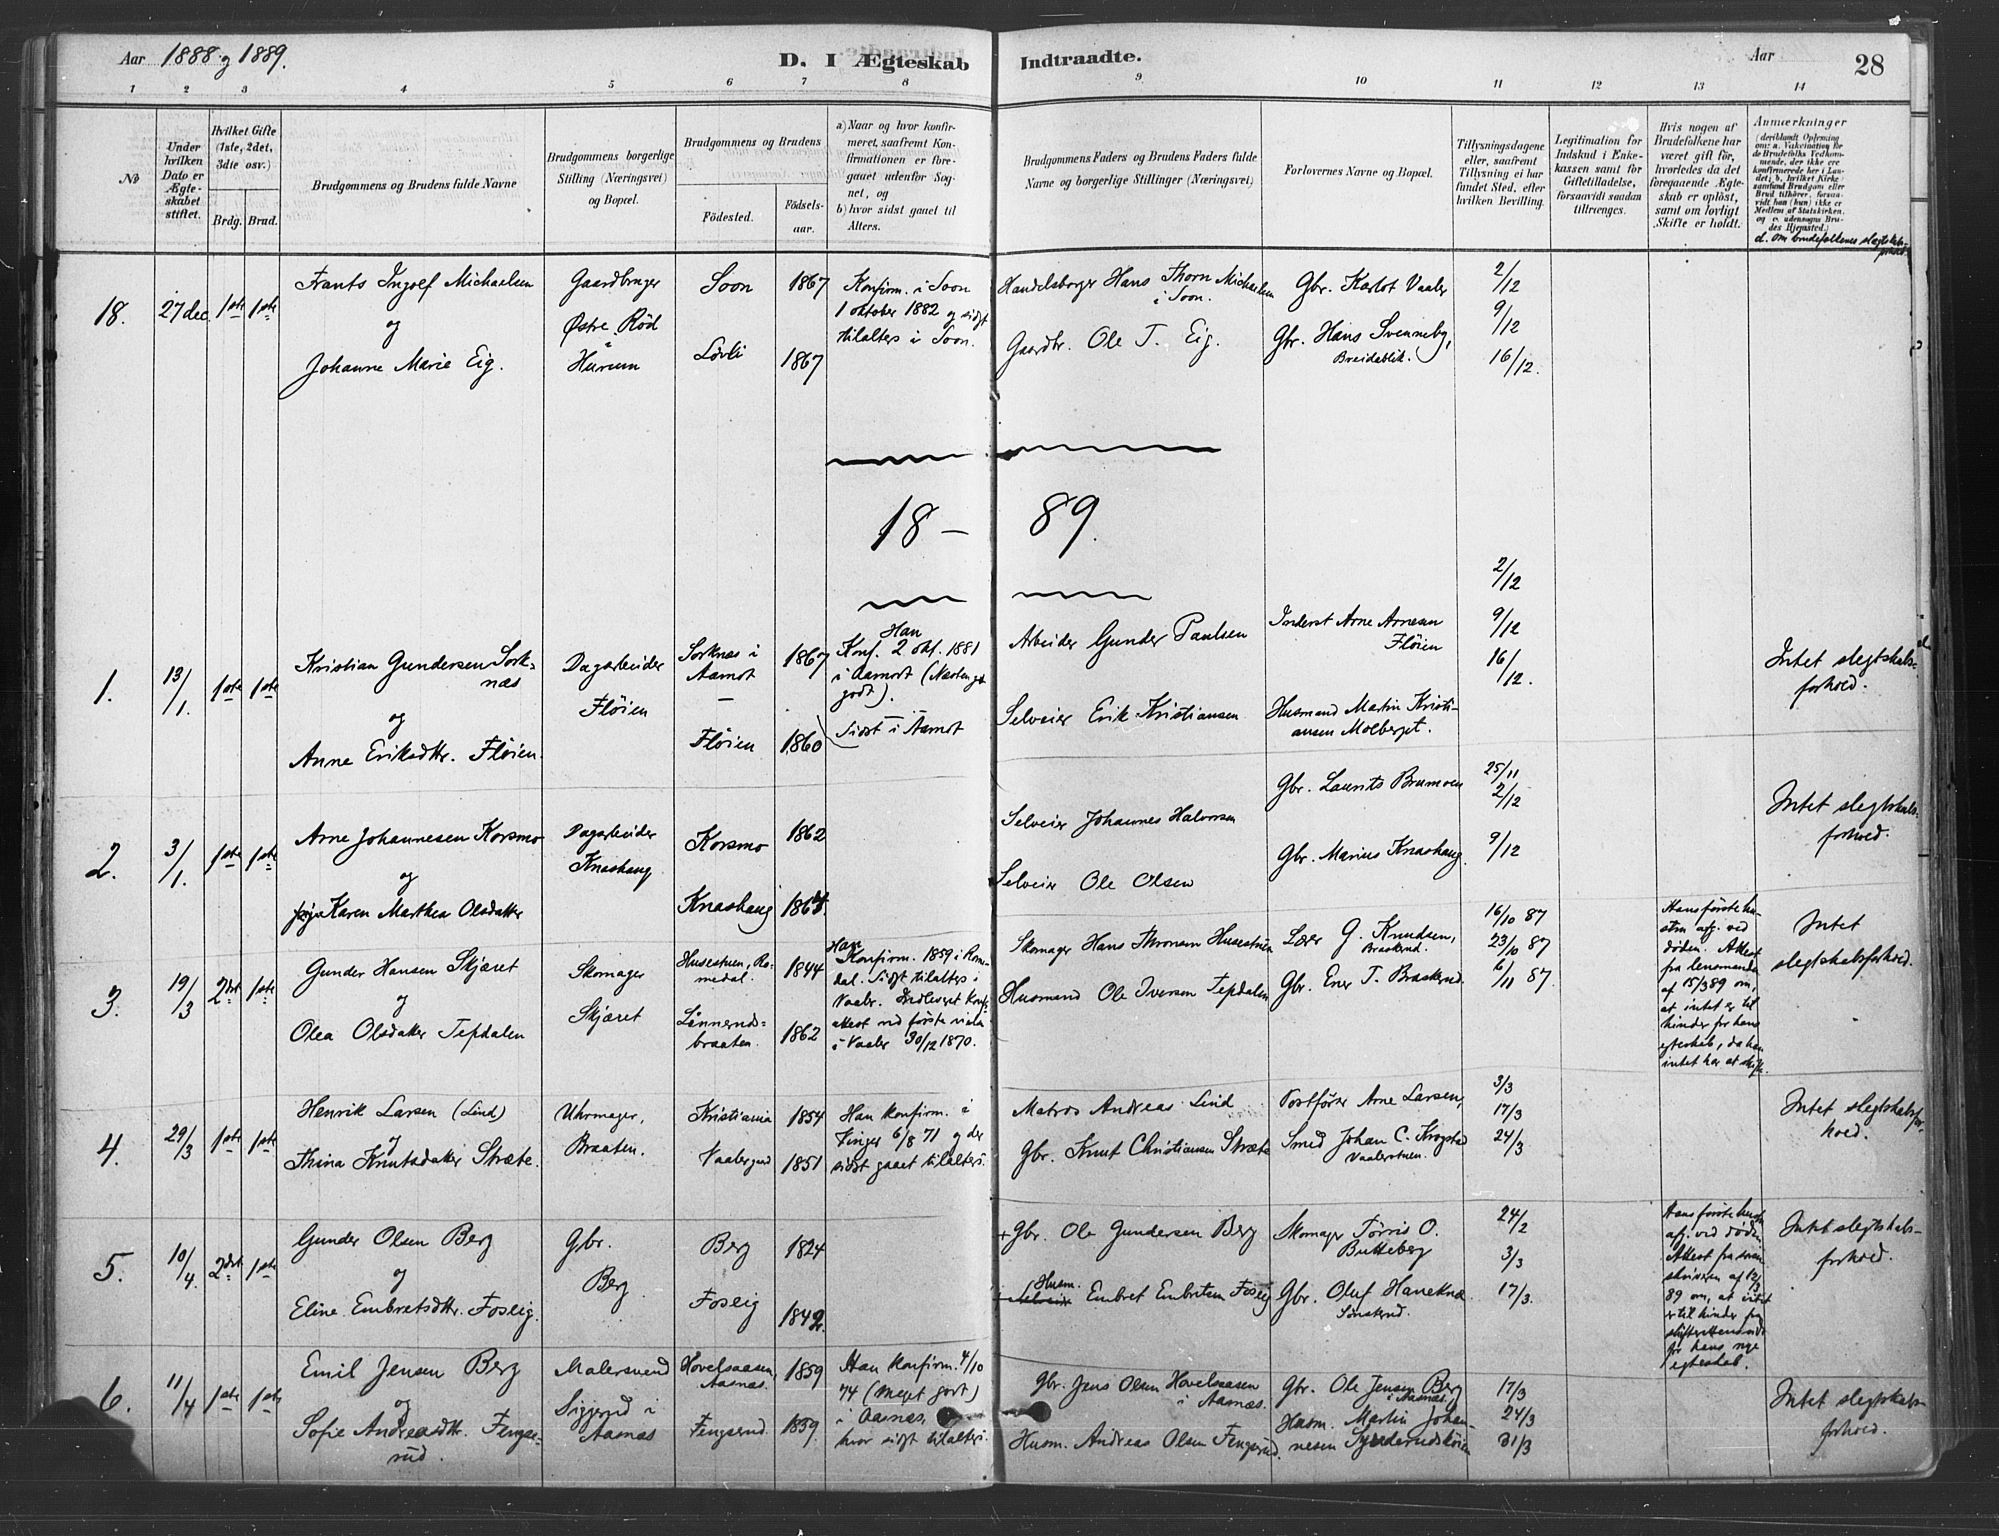 Aar 1888 og 1889.
D. I Ægteskab Indtraadte.
Aar
28
1 2 3 4 5 6 7 8 9 10 11 12 13 14
No
Under hvilken Dato er Ægteskabet stiftet.
Hvilket Gifte (1ste, 2det, 3die osv.)
Brdg. Brud.
Brudgommens og Brudens fulde Navne
Brudgommens borgerlige Stilling (Næringsvei) og Bopæl.
Brudgommens og Brudens
Födested.
Födselsaar.
a) Naar og hvor konfirmeret, saafremt Konfirmationen er foregaaet udenfor Sognet, og
b) hvor sidst gaaet til Alters.
Brudgommens Faders og Brudens Faders fulde Navne og borgerlige Stillinger (Næringsvei)
Forlovernes Navne og Bopæl.
Tillysningsdagene eller, saafremt Tillysning ei har fundet Sted, efter hvilken Bevilling.
Legitimation for Indskud i Enkekassen samt for Giftetilladelse, forsaavidt saadan tiltrænges.
Hvis nogen af Brudefolkene har været gift för, hvorledes da det foregaaende Ægteskab er oplöst, samt om lovligt Skifte er holdt.
Anmærkninger
(deriblandt Oplysning om: a. Vakcination for de Brudefolks Vedkommende, der ikke ere konfirmerede her i Landet; b. hvilket Kirkesamfund Brudgom eller Brud tilhörer, forsaavidt han (hun) ikke er Medlem af Statskirken, og c. udensogns Brudes Hjemsted.)
d. om brudefolkenes slegtskabs-
18. 27 dec. 1ste 1ste
Frants Ingolf Michaelsen
og
Johanne Marie Eig.
Gaardbruger
Østre Rød
Hurum
Soon 1867
Løvli 1867
Konfirm. i Soon
1 oktober 1882 og sidst
tilalters i Soon.
Handelsborger Hans Thorn Michaelsen
i Soon.
Gaardbr. Ole T. Eig.
Gbr. Karlot Vaaler
Gbr. Hans Svenneby,
Breideblik.
2/12
9/12
16/12.
18 – 89.
1. 13/1. 1ste 1ste
Kristian Gundersen Sork-
næs
og
Anne Eriksdtr. Fløien.
Dagarbeider
Fløien
Sorknæs i
Aamot
1867
Fløien 1860
Han
Konf. 2 okt. 1881
i Aamodt (Næsten g
godt).
Sidst i Aamot
Arbeider Gunder Paulsen
Selveier Erik Kristiansen
Inderst Arne Arnesen
Fløien
Husmand Martin Kristi-
ansen Molberget.
2/12
9/12
16/12.
Intet slegtskabs-
forhold.
2. 3/1. 1ste 1ste
Arne Johannesen Korsmo
og
Karen Marthea Olsdatter
Dagarbeider
Knashaug
Korsmo 1862
Knashaug
Selveier Johannes Halvorsen
Selveier Ole Olsen
Gbr. Laurits Brumoen
Gbr. Marius Knashaug.
25/11
2/12
9/12
Intet slegtskabs-
forhold.
3. 19/3 2det 1ste
Gunder Hansen Skjæret
og
Olea Olsdatter Tepdalen
Skomager
Skjæret
Husestuen, Ro-
medal. 1844
Lønneruds-
braaten. 1862
Han
Konfirm. 1859 i Rome-
dal. Sidst tilalters i
Vaaler. Indleveret konf.
attest ved første vielse
i Vaaler 30/12 1870.
Skomager Hans Thronsen Husestuen
Husmand Ole Iversen Tepdalen
Lærer G. Knudsen,
Braskerud.
Gbr. Ener T. Braskerud.
16/10 87
23/10 87
6/11 87.
Hans første hu-
stru afg. ved
døden. Attest
fra lensmanden
af 15/3 89 om,
at intet er til
hinder for hans
egteskab, da han
intet har at skifte.
Intet
slegtskabsforhold.
4. 29/3 1ste 1ste
Henrik Larsen (Lind)
og
Thina Knutsdatter Stræte.
Uhrmager,
Braaten.
Kristiania 1854
Vaalergaard 1851
Han konfirm. i
Vinger 6/8 71 og der
sidst gaaet tilalters.
Matros Andreas Lind
Gbr. Knut Christiansen Stræte
Postfører Arne Larsen,
Smed Johan C. Krogstad
Vaalerstuen.
3/3
17/3
24/3
Intet slegtskabsfor-
hold.
5. 10/4. 2det 1ste
Gunder Olsen Berg
og
Eline Embretsdtr. Foseig.
Gbr.
Berg
Berg 1824
Foseig 1842
+Gbr. Ole Gundersen Berg
Husm.
Selveier Embret Embretsen Foseig
Skomager Tørris O.
Butteberg
Gbr. Oluf Haneknæ
Sønskerud.
24/2
3/3
17/3.
Hans første hustru
afg. ved døden
Attest fra soren
skriveren af 12/3
89 om, at intet
er til hinder fra
skifterettens side
for hans nye
egteskab.
Intet slegtskabs-
forhold.
6. 11/4 1ste 1ste
Emil Jensen Berg
og
Sofie Andreasdtr. Fengse-
rud.
Malersvend
Siggerud i
Aasnæs
Hovelsaasen,
Aasnæs. 1859
Fengserud. 1859.
Han konfirm. 4/10
74 (meget godt)
i Aasnæs,
hvor sidst tilalters.
Gbr. Jens Olsen Hovelsaasen
i Aasnæs.
Husm. Andreas Olsen Fengserud
Gbr. Ole Jensen Berg
i Aasnæs
Husm. Martin Johan-
nesen Synderudskoien
17/3
24/3
31/3
Intet slegtskabs-
forhold.